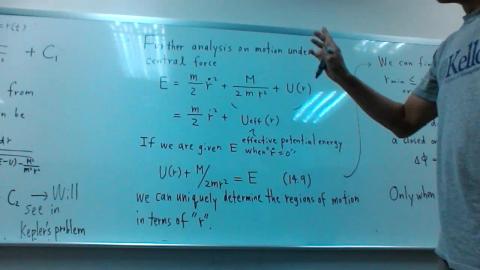 = r(t)
+ C₁
from
n be
dr
C₂ → Will
see in
Kepler's problem
Further analysis on motion under
central force
E = m/2 ṙ² + M/2mr² + U(r)
= m/2 ṙ² + Ueff(r)
effective potential energy
If we are given E when "ṙ=0"
U(r) + M/2mr² = E (14.9)
we can uniquely determine the regions of motion
in terms of "r".
We can fin
rmin ≤
or
a closed o
Δφ =
Only when
Kello